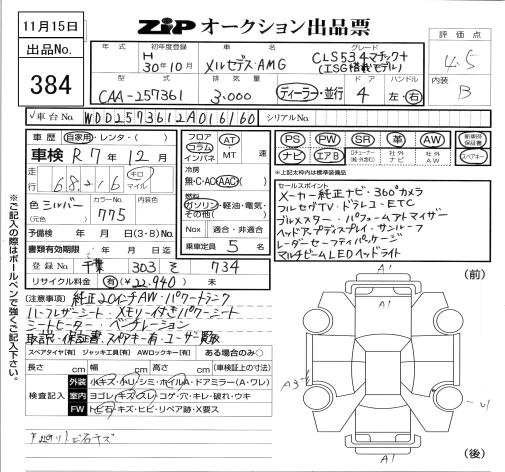 11月15日
出品No.
384
ZiPオークション出品票
評価点
4.5
内装
B
年式 初年度登録 車名 グレード
H
30年10月 メルセデス・AMG CLS53 4マチック+
(ISG搭載モデル)
型式 排気量 ドア ハンドル
CAA-257361 3,000 ディーラー・並行 4 左・右
車台No. WDD2573612A016160 シリアルNo.
車歴 自家用・レンタ・( )
車検 R7年12月
走行 68,216 キロ マイル
色 シルバー カラーNo. 775
(元色)
予備検 年 月 日(3・8)No.
書類有効期限 年 月 日
登録No. 千葉 303 そ 734
リサイクル料金 有(¥22,940) 未
フロア コラム インパネ AT MT 速
冷房
無・C・AC(AAC)
燃料
ガソリン・軽油・電気・
その他( )
Nox 適合・非適合
乗車定員 5 名
PS PW SR 革 AW 新車時保証書
ナビ エアB 社外ナビ 社外AW スペアキー
※上記太枠内は標準装備品
セールスポイント
メーカー純正ナビ・360°カメラ
フルセグTV・ドラレコ・ETC
ブルメスター・パフュームアトマイザー
ヘッドアップディスプレイ・サンルーフ
レーダーセーフティパッケージ
マルチビームLEDヘッドライト
(注意事項) 純正20インチAW・パワートランク
ハーフレザーシート・メモリー付きパワーシート
シートヒーター・ベンチレーション
取説・保証書・スペアキー有・ユーザー買取
スペアタイヤ[有] ジャッキ工具[有] AWロックキー[有] ある場合のみ○
長さ cm 幅 cm 高さ cm (車検証上の寸法)
検査記入
外装 小キズ・小U・シミ・ホイルA・ドアミラー(A・ワレ)
室内 ヨゴレ・キズ・スレ・コゲ・穴・キレ・破れ・ウキ
FW トビ石・キズ・ヒビ・リペア跡・X要ス
※ご記入の際はボールペンで強くご記入下さい。
(前)
A1
A1
A3
U
A1
(後)